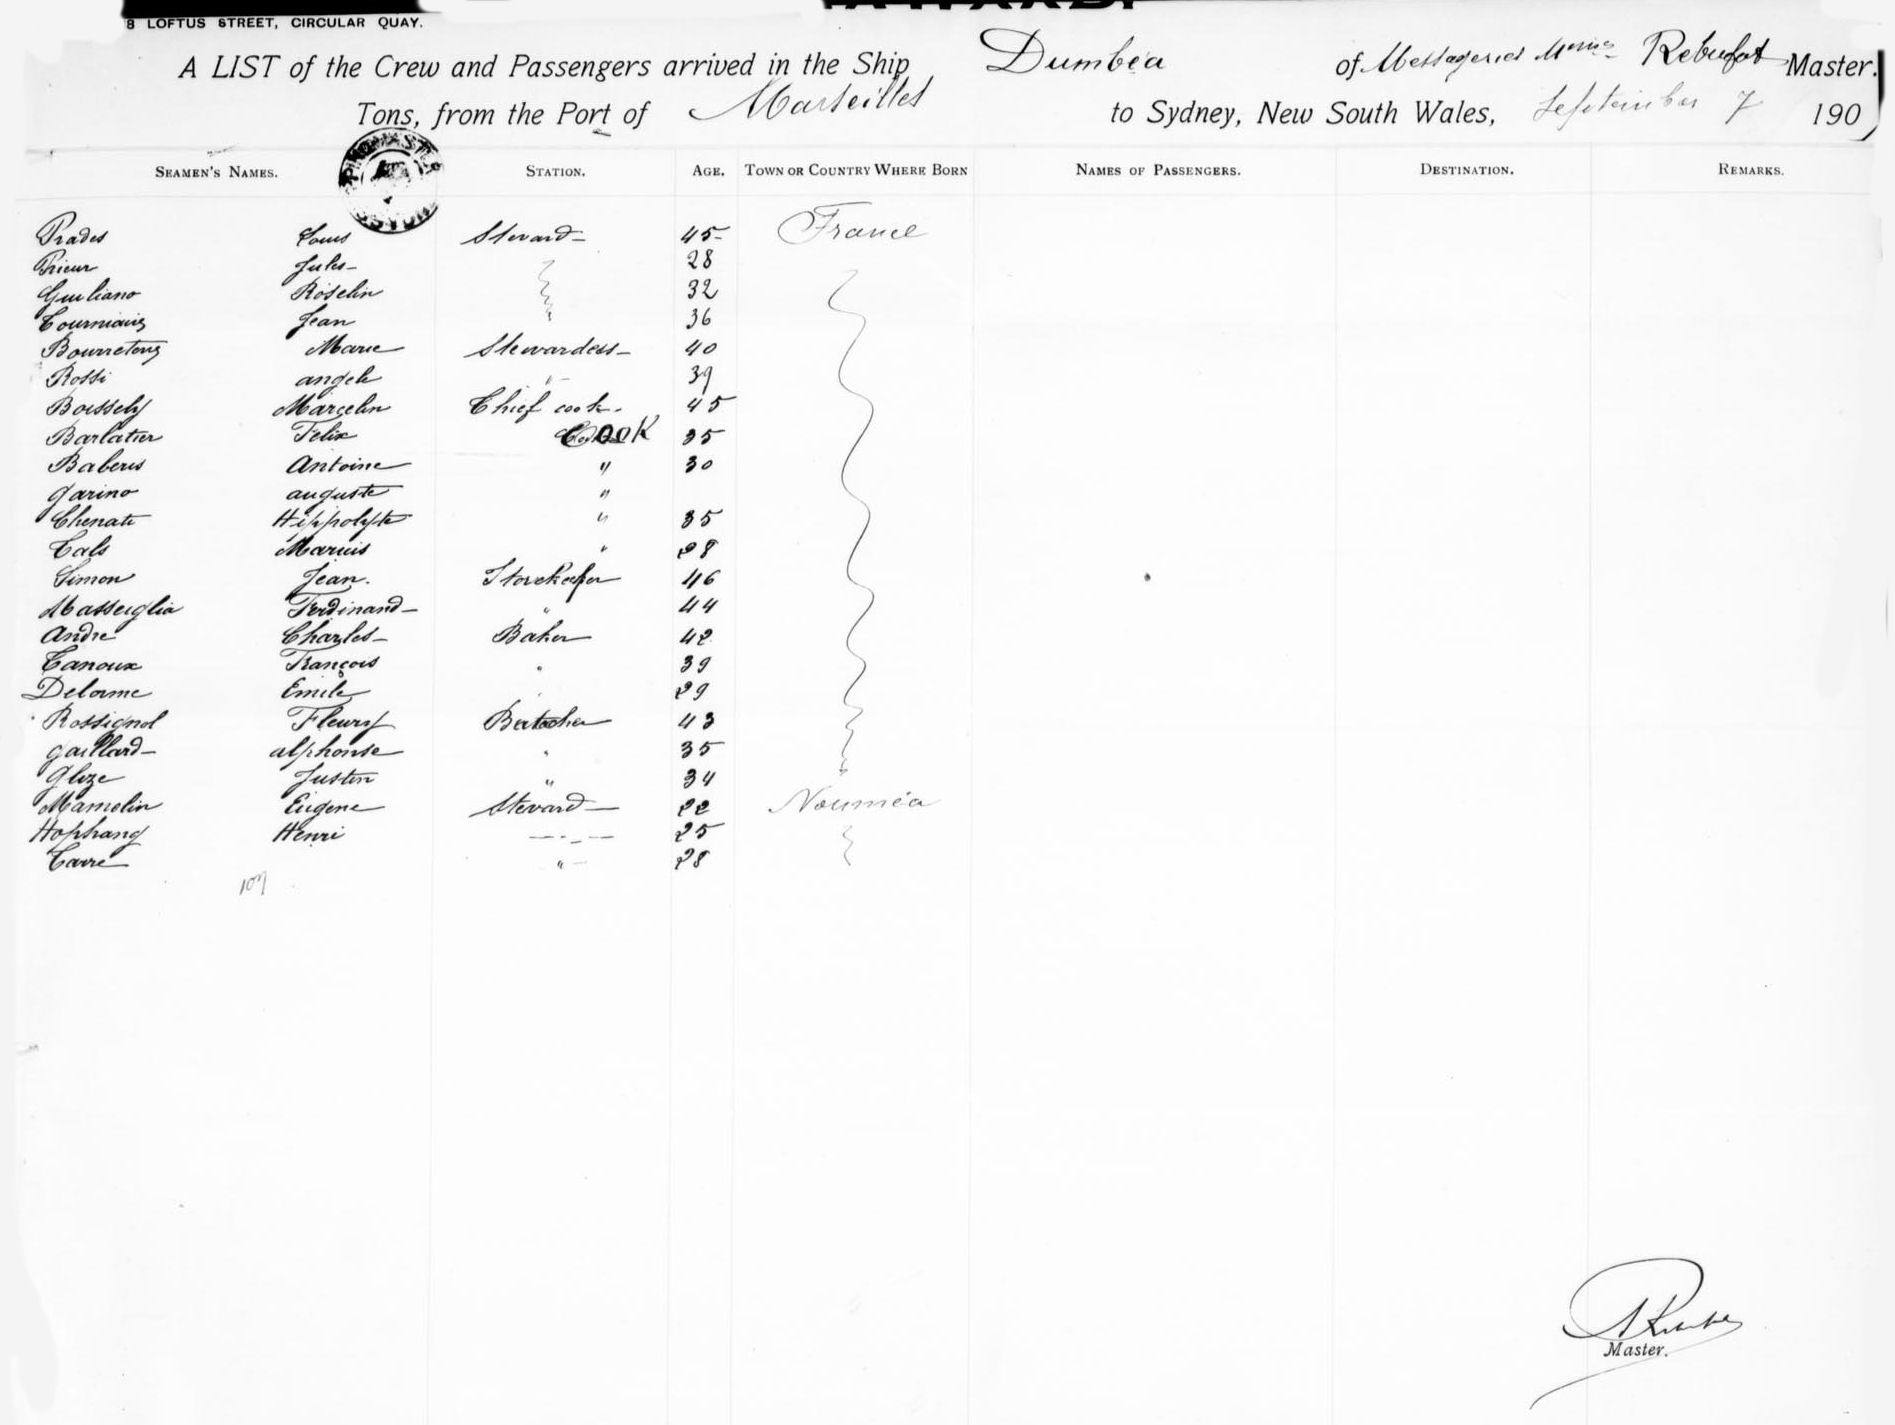 8 LOFTUS STREET, CIRCULAR QUAY.
A LIST of the Crew and Passengers arrived in the Ship Dumbéa of Messageries Mmes Rebufat Master.
Tons, from the Port of Marseilles to Sydney, New South Wales, September 7 190
SEAMEN'S NAMES. STATION. AGE. TOWN OR COUNTRY WHERE BORN NAMES OF PASSENGERS. DESTINATION. REMARKS.
Prades Louis Stevard 45 France
Prieur Jules 28
Giuliano Roselin 32
Jean 36
Marie Stewardess 40
Rossi angele " 39
Boissely Marcelin Chief cook 45
Barlatier Felix Cook 35
Baberis Antoine " 30
garino auguste "
Chenati Hippolyte " 35
Cals Marius " 28
Simon Jean. Storekeeper 46
Masseiglia Ferdinand " 44
Andre Charles Baker 42
Canoux François " 39
Delorme Emile " 29
Rossignol Fleury Butcher 43
gaillard alphonse " 35
gleze Justin " 34
Mamelin Eugene Stevard 22 Nouméa
Hophang Henri " 25
Carre " 28
107
Master.